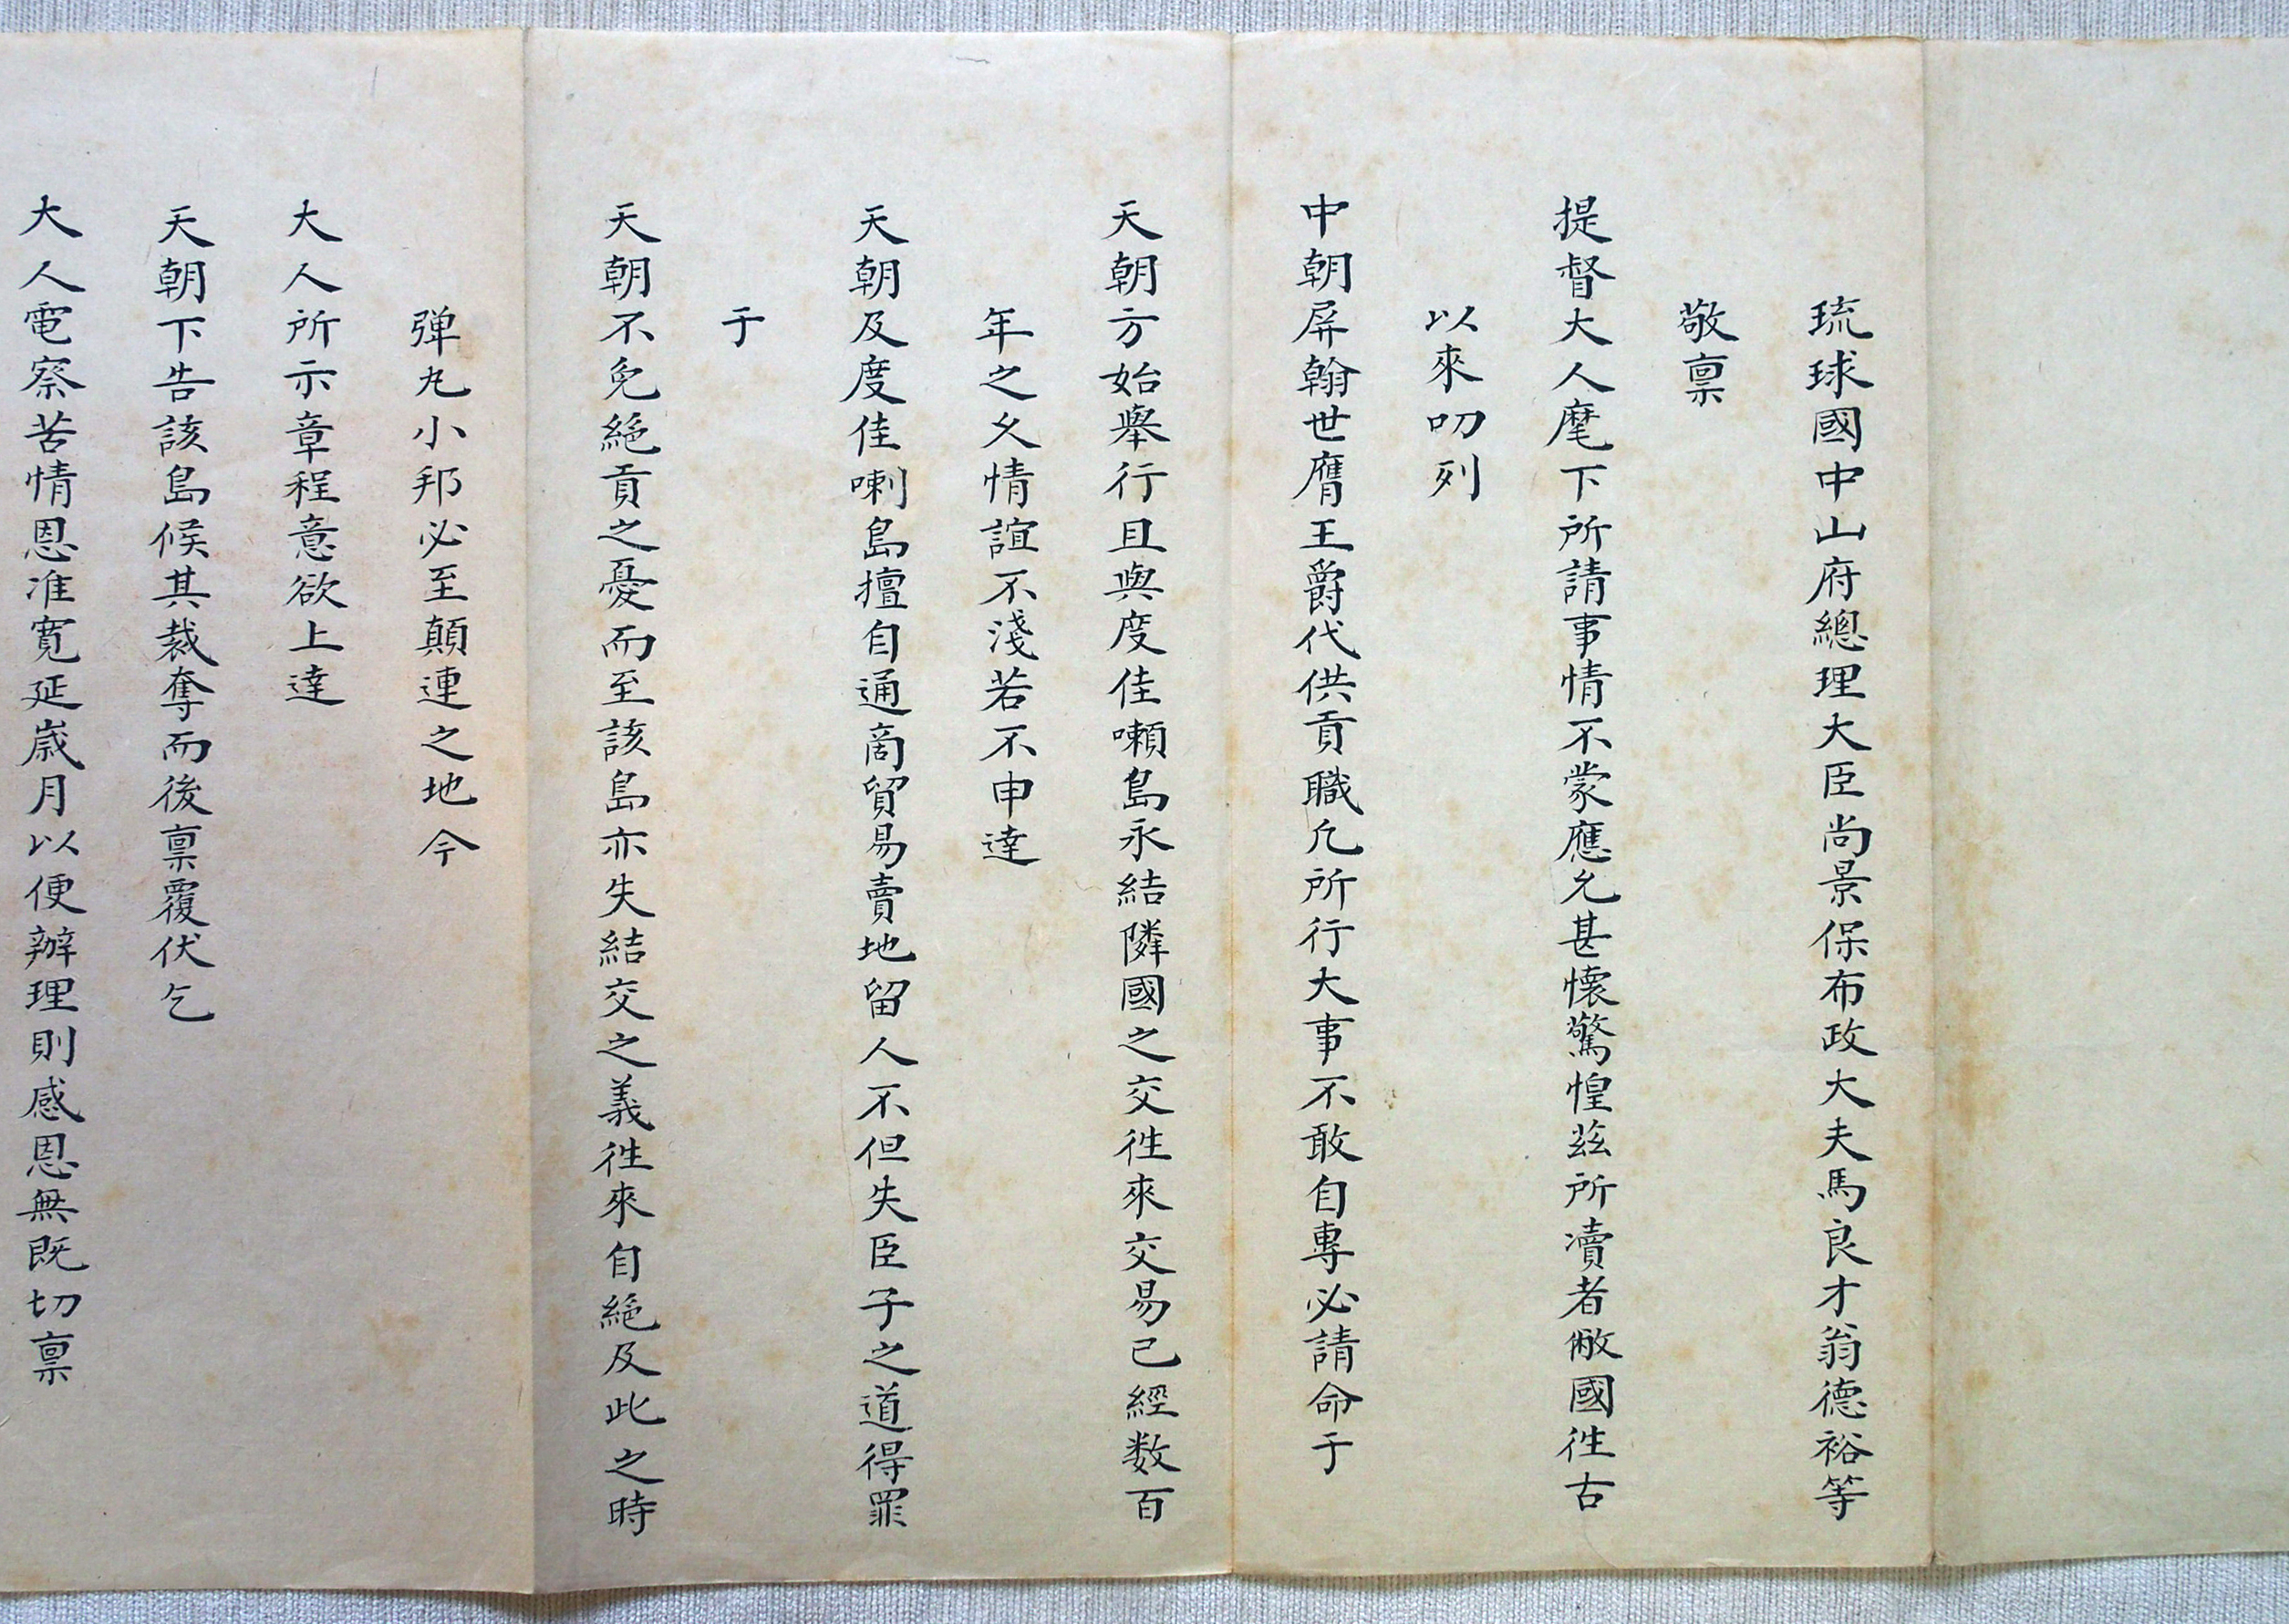 琉球國中山府總理大臣尚景保布政大夫馬良才翁德裕等
敬禀
提督大人麾下所請事情不蒙應允甚懷驚惶茲所瀆者敝國徃古
以來叨列
中朝屏翰世膺王爵代供貢職凢所行大事不敢自專必請命于
天朝方始舉行且與度佳喇島永結隣國之交徃來交易已經数百
年之久情誼不淺若不申達
天朝及度佳喇島擅自通商貿易賣地留人不但失臣子之道得罪
于
天朝不免絕貢之憂而至該島亦失結交之義徃來自絕及此之時
弹丸小邦必至顛連之地今
大人所示章程意欲上達
天朝下告該島候其裁奪而後禀覆伏乞
大人電察苦情恩准寬延歲月以便辦理則感恩無既切禀